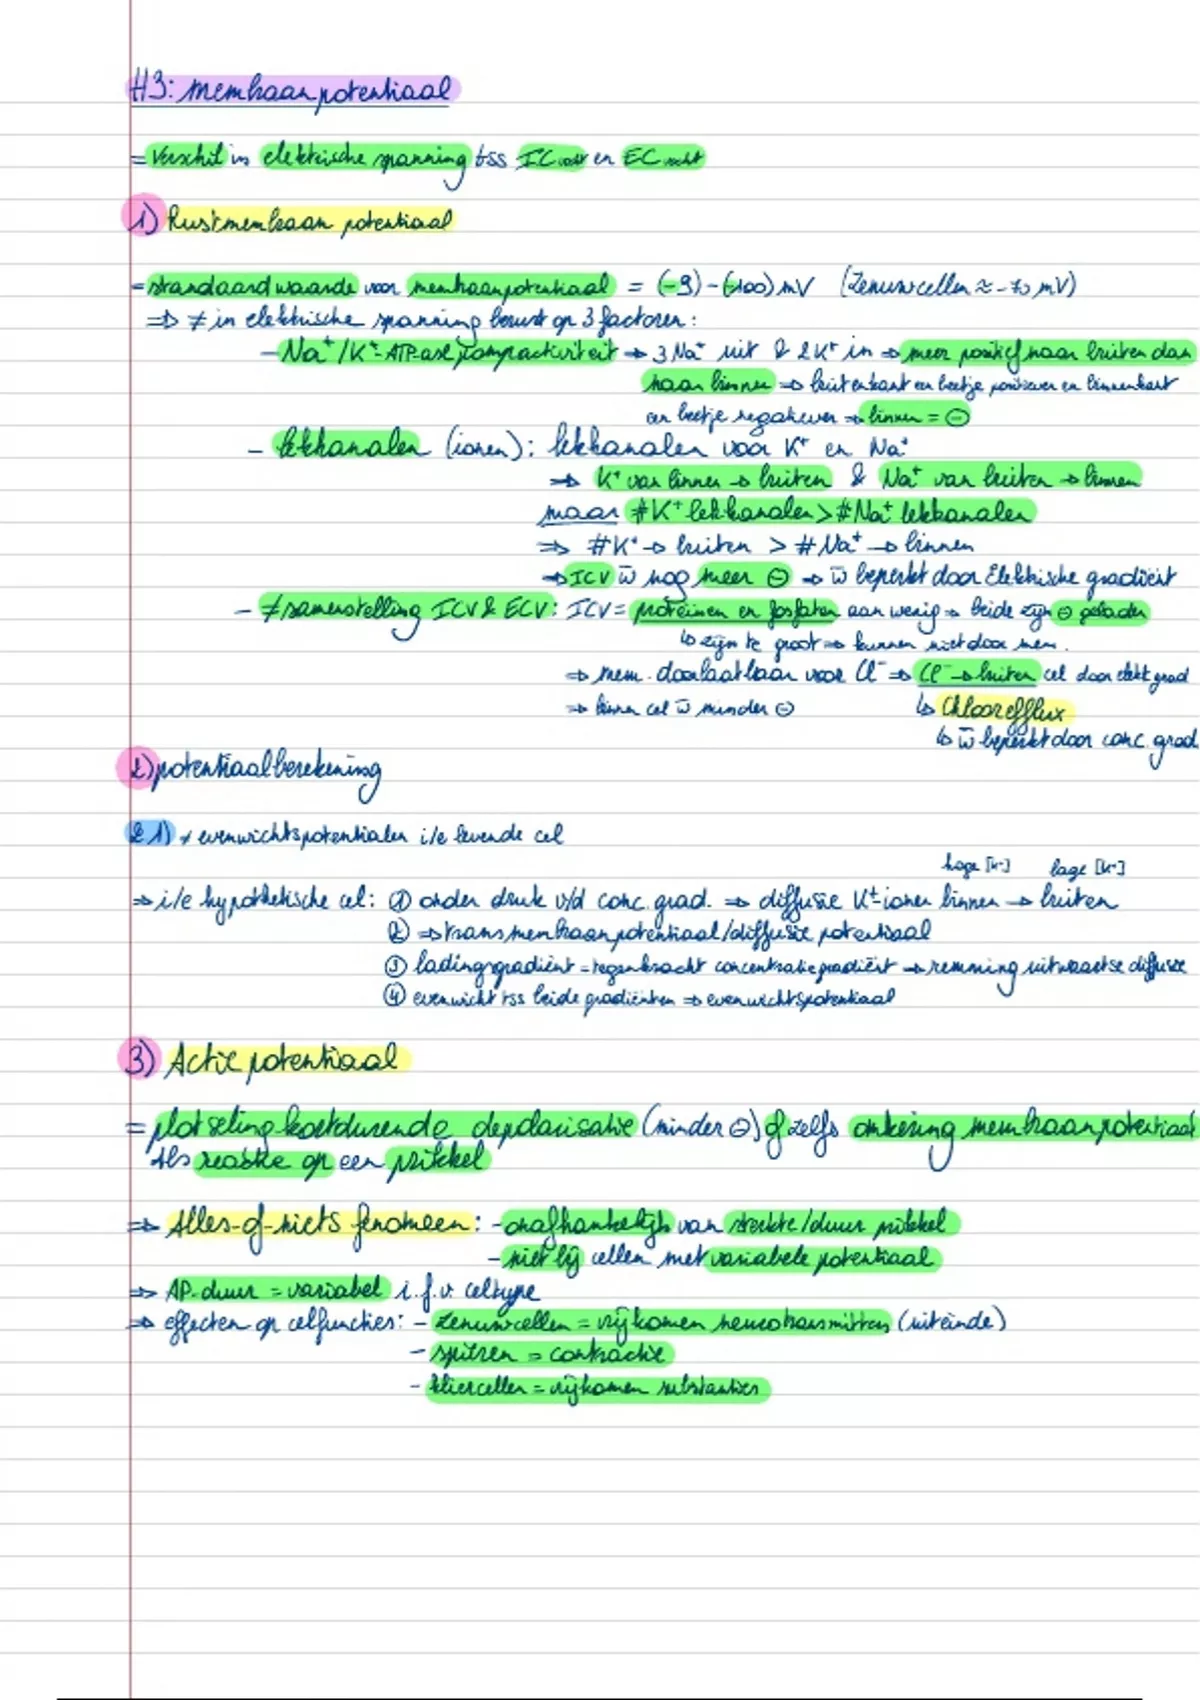 H3: Membraanpotentiaal
= Verschil in elektrische spanning tss ICvocht en ECvocht
1) Rustmembraan potentiaal
= standaardwaarde voor membraanpotentiaal = (-9) - (-100) mV (Zenuwcellen ≈ -70 mV)
⇒ ≠ in elektrische spanning berust op 3 factoren:
- Na⁺/K⁺-ATP-ase pompactiviteit → 3 Na⁺ uit & 2K⁺ in → meer positief naar buiten dan
naar binnen → buitenkant en beetje positiever en binnenkant
een beetje negatiever → binnen = ⊖
- lekkanalen (ionen): lekkanalen voor K⁺ en Na⁺
→ K⁺ van binnen → buiten & Na⁺ van buiten → binnen
maar #K⁺ lekkanalen > #Na⁺ lekkanalen
⇒ #K⁺ → buiten > #Na⁺ → binnen
→ ICV w̄ nog meer ⊖ → w̄ beperkt door Elektrische gradiënt
- ≠ samenstelling ICV & ECV: ICV = proteïnen en fosfaten aanwezig → beide zijn ⊖ geladen
↳ zijn te groot → kunnen niet door mem.
⇒ mem. doorlaatbaar voor Cl⁻ ⇒ Cl⁻ → buiten cel door elekt grad
⇒ binnen cel w̄ minder ⊖ ↳ Chloorefflux
↳ w̄ beperkt door conc. grad
2) potentiaalberekening
2.1) ≠ evenwichtspotentialen i/e levende cel
hoge [K⁺] lage [K⁺]
⇒ i/e hypothetische cel: ① onder druk v/d conc. grad. → diffusie K⁺-ionen binnen → buiten
② ⇒ transmembraanpotentiaal/diffusie potentiaal
③ ladingsgradiënt = tegenkracht concentratiegradiënt → remming uitwaartse diffusie
④ evenwicht tss beide gradiënten ⇒ evenwichtspotentiaal
3) Actie potentiaal
= plotseling kortdurende depolarisatie (minder ⊖) of zelfs omkering membraanpotentiaal
als reactie op een prikkel
⇒ Alles-of-niets fenomeen: - onafhankelijk van sterkte/duur prikkel
- niet bij cellen met variabele potentiaal
⇒ AP-duur = variabel i.f.v. celtype
⇒ effecten op celfuncties: - zenuwcellen = vrijkomen neurotransmitters (uiteinde)
- spieren = contractie
- kliercellen = vrijkomen substanties